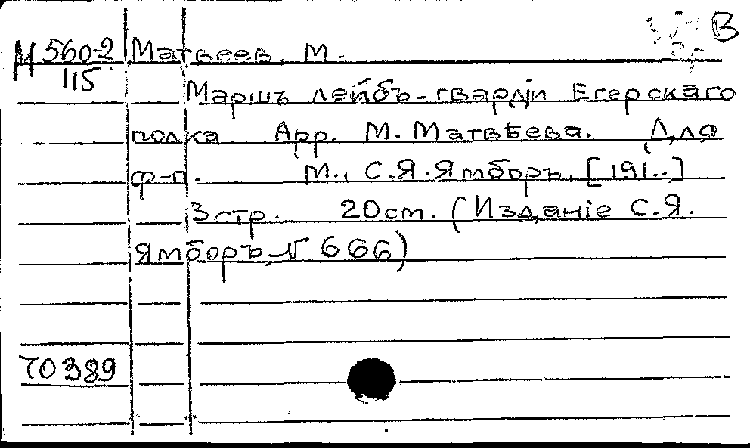 В
М 560-2 Матвеев, М.
115
Маршъ лейбъ-гвардiи Егерскаго
полка Арр. М. Матвѣева. Для
ф-п. М., С.Я. Ямборъ, [191..]
3 стр. 20 см. (Изданiе С.Я.
Ямборъ, № 666)
70389